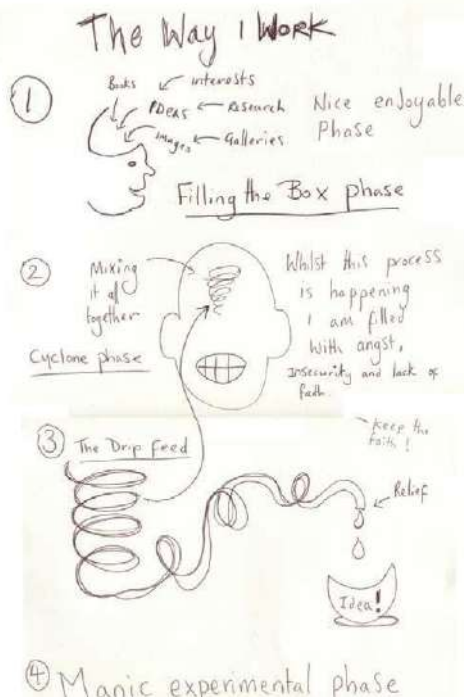 The Way I Work
1
Books
interests
Ideas
Research
images
Galleries
Nice enjoyable
Phase
Filling the Box phase
2
Mixing
it all
together
Cyclone phase
Whilst this process
is happening
I am filled
with angst,
insecurity and lack of
faith.
keep the
faith!
3 The Drip Feed
Relief
Idea!
4 Manic experimental phase